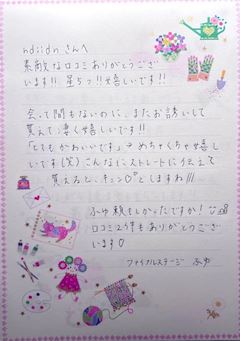 ndiidnさんへ
素敵な口コミありがとうござ
います!! 星5つ!! 嬉しいです!!
会って間もないのに、またお誘いして
貰えて凄く嬉しいです!!
「とてもかわいいです」→ めちゃくちゃ嬉し
いです(笑) こんなにストレートに伝えて
貰えると、キュン♡としますね///
ふゆ
もしかったですか!
口コミ2件もありがとうござい
ます♡
ファイナルステージ ふゆ